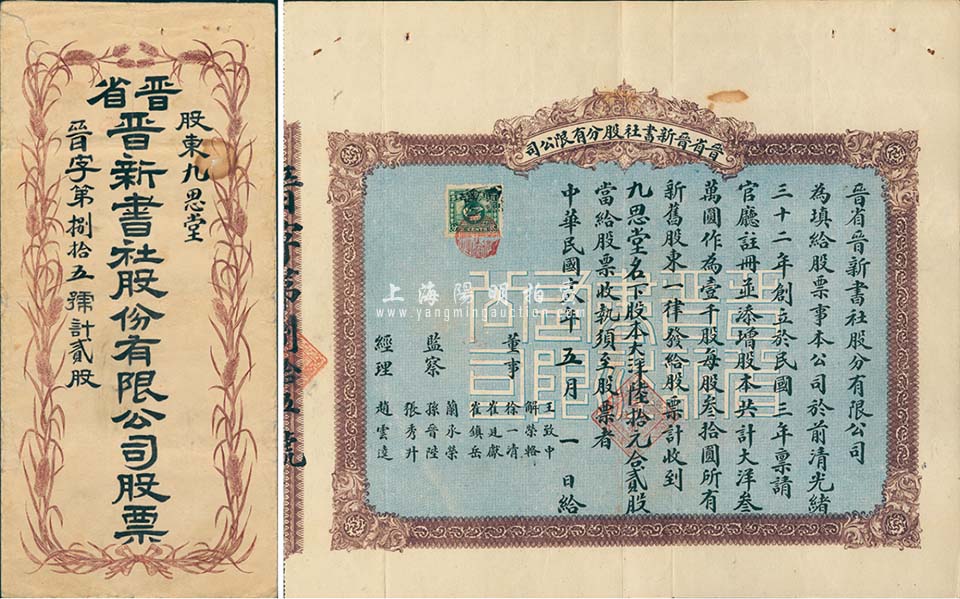 晋省
晋新書社股份有限公司股票
股東九思堂
晋字第捌拾五號計貳股
晉省晉新書社股分有限公司
晉省晉新書社股分有限公司
為填給股票事本公司於前清光緒
三十二年創立於民國三年稟請
官廳註冊並添增股本共計大洋叁
萬圓作為壹千股每股叁拾圓所有
新舊股東一律發給股票計收到
九思堂名下股本大洋陸拾元合貳股
當給股票收執須至股票者
中華民國 年 五月 一 日給
董事
王致中
解榮輅
徐一清
崔廷獻
崔鎮岳
監察
蘭承榮
孫晉陞
張秀升
經理
趙雲逵
上海陽明拍
www.yangmingauction.com